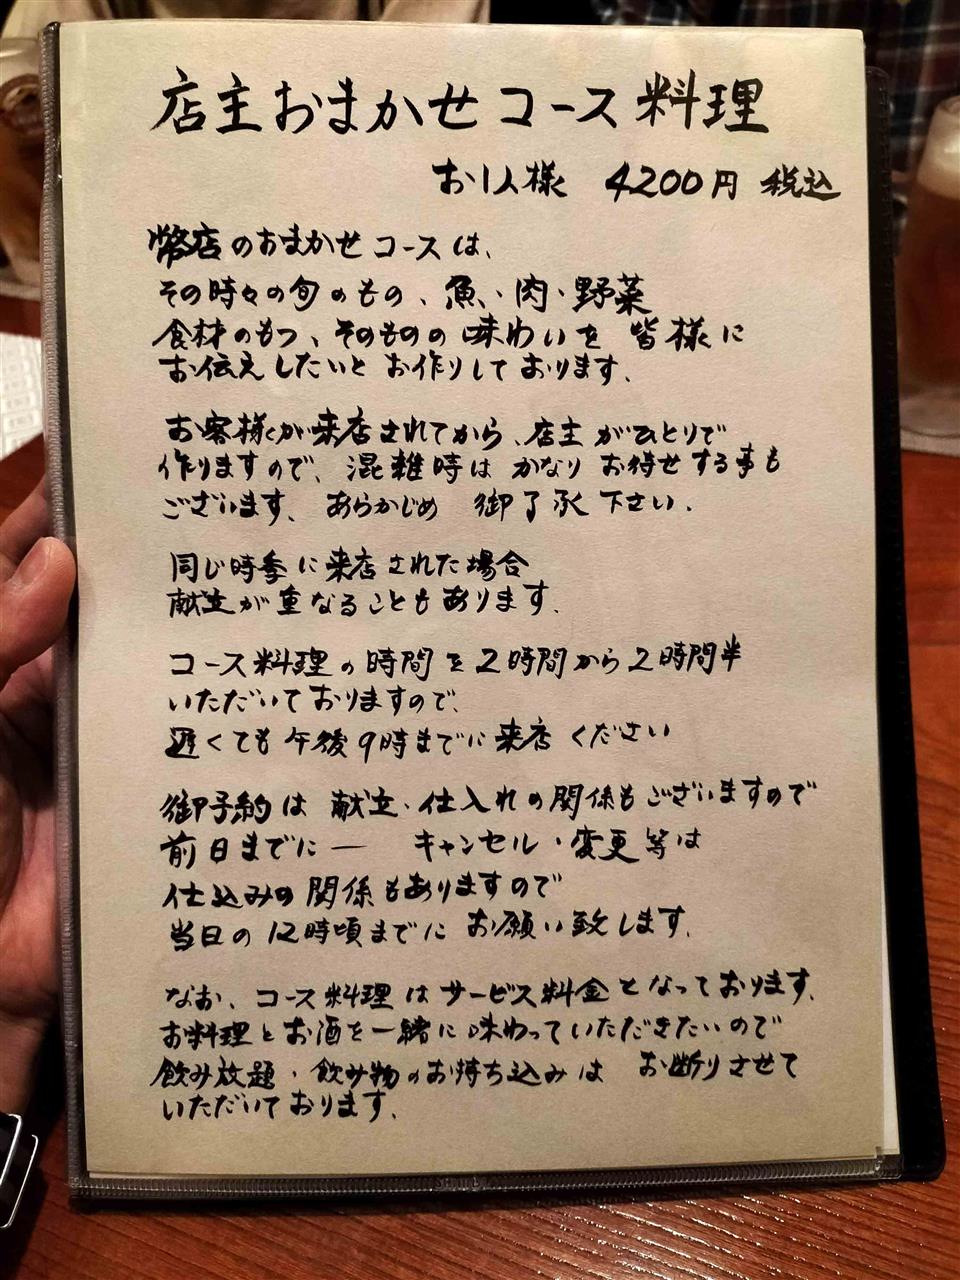 店主おまかせコース料理
お1人様 4200円 税込
弊店のおまかせコースは、
その時々の旬のもの、魚、・肉・野菜
食材のもつ、そのものの味わいを 皆様に
お伝えしたいと お作りしております。
お客様が来店されてから、店主がひとりで
作りますので、混雑時は かなり お待せする事も
ございます、 あらかじめ 御了承下さい。
同じ時季に来店された場合
献立が重なることもあります。
コース料理の時間を2時間から2時間半
いただいておりますので、
遅くても午後9時までに来店ください
御予約は 献立・仕入れの関係もございますので
前日までに― キャンセル・変更等は
仕込みの関係もありますので
当日の12時頃までに お願い致します。
なお、コース料理はサービス料金となっております。
お料理とお酒を一緒に味わっていただきたいので
飲み放題・飲み物のお持ち込みは お断りさせて
いただいております。